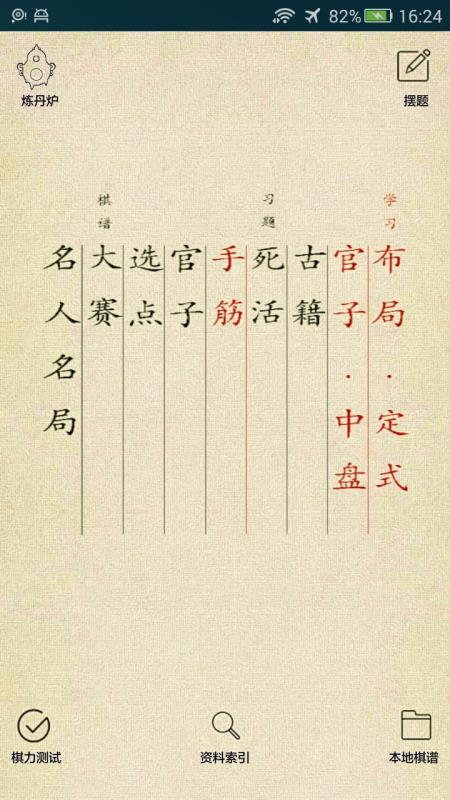 82% 16:24
炼丹炉
摆题
学习
习题
棋谱
布局·定式
官子·中盘
古籍
死活
手筋
官子
选点
大赛
名人名局
棋力测试
资料索引
本地棋谱